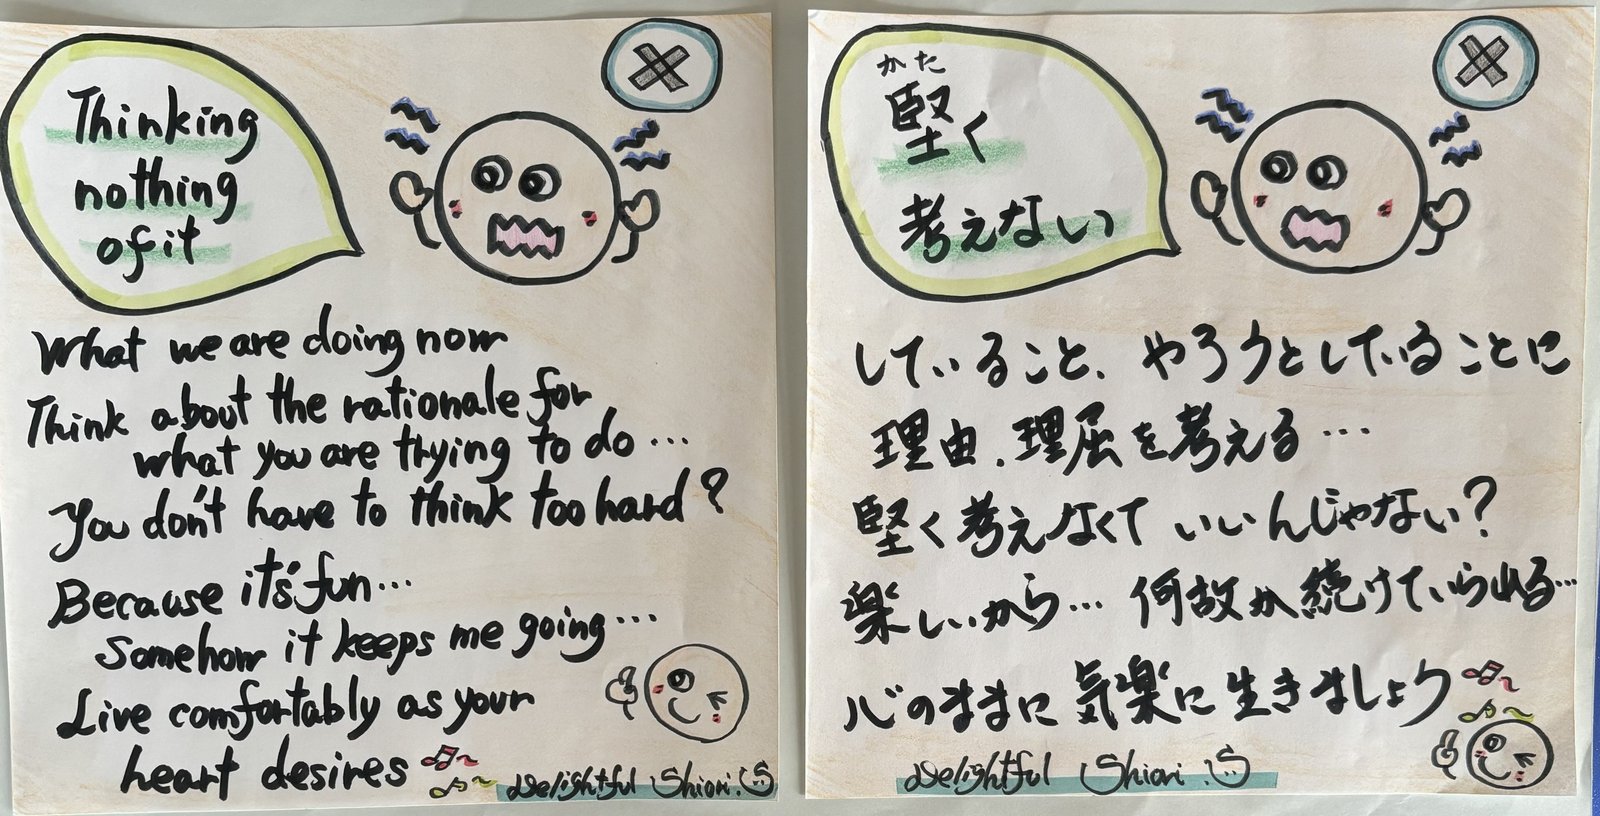 Thinking
nothing
of it
What we are doing now
Think about the rationale for
what you are trying to do...
You don't have to think too hard?
Because it's fun...
Somehow it keeps me going...
Live comfortably as your
heart desires
Delightful Shiori.S
かた
堅く
考えない
していること、やろうとしていることに
理由、理屈を考える...
堅く考えなくていいんじゃない?
楽しいから... 何故か続けていられる...
心のままに気楽に生きましょう
Delightful Shiori.S